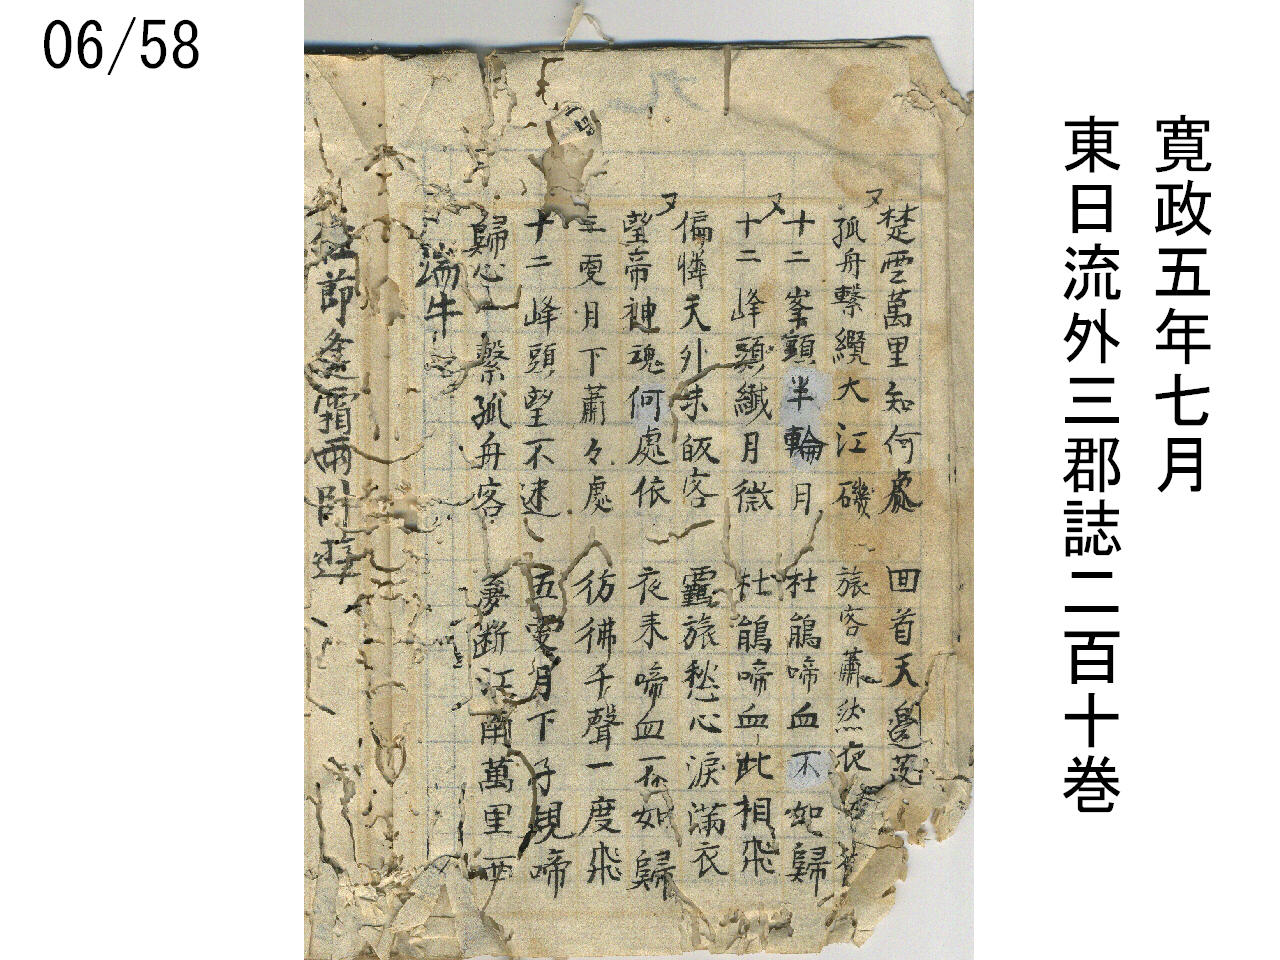 06/58
寛政五年七月
東日流外三郡誌二百十巻
楚雲萬里知何處 回首天邊
又
孤舟繋纜大江磯 旅客蕭然夜
十二峯頭半輪月 杜鵑啼血不如歸
又
十二峰頭纖月微 杜鵑啼血此相飛
偏憐天外未皈客 覊旅愁心淚滿衣
又
望帝神魂何處依 夜来啼血不如歸
三更月下蕭々處 彷彿千聲一度飛
十二峰頭望不迷 五更月下子規啼
歸心一繋孤舟客 夢断江南萬里西
端午
節逢霜雨卧遊